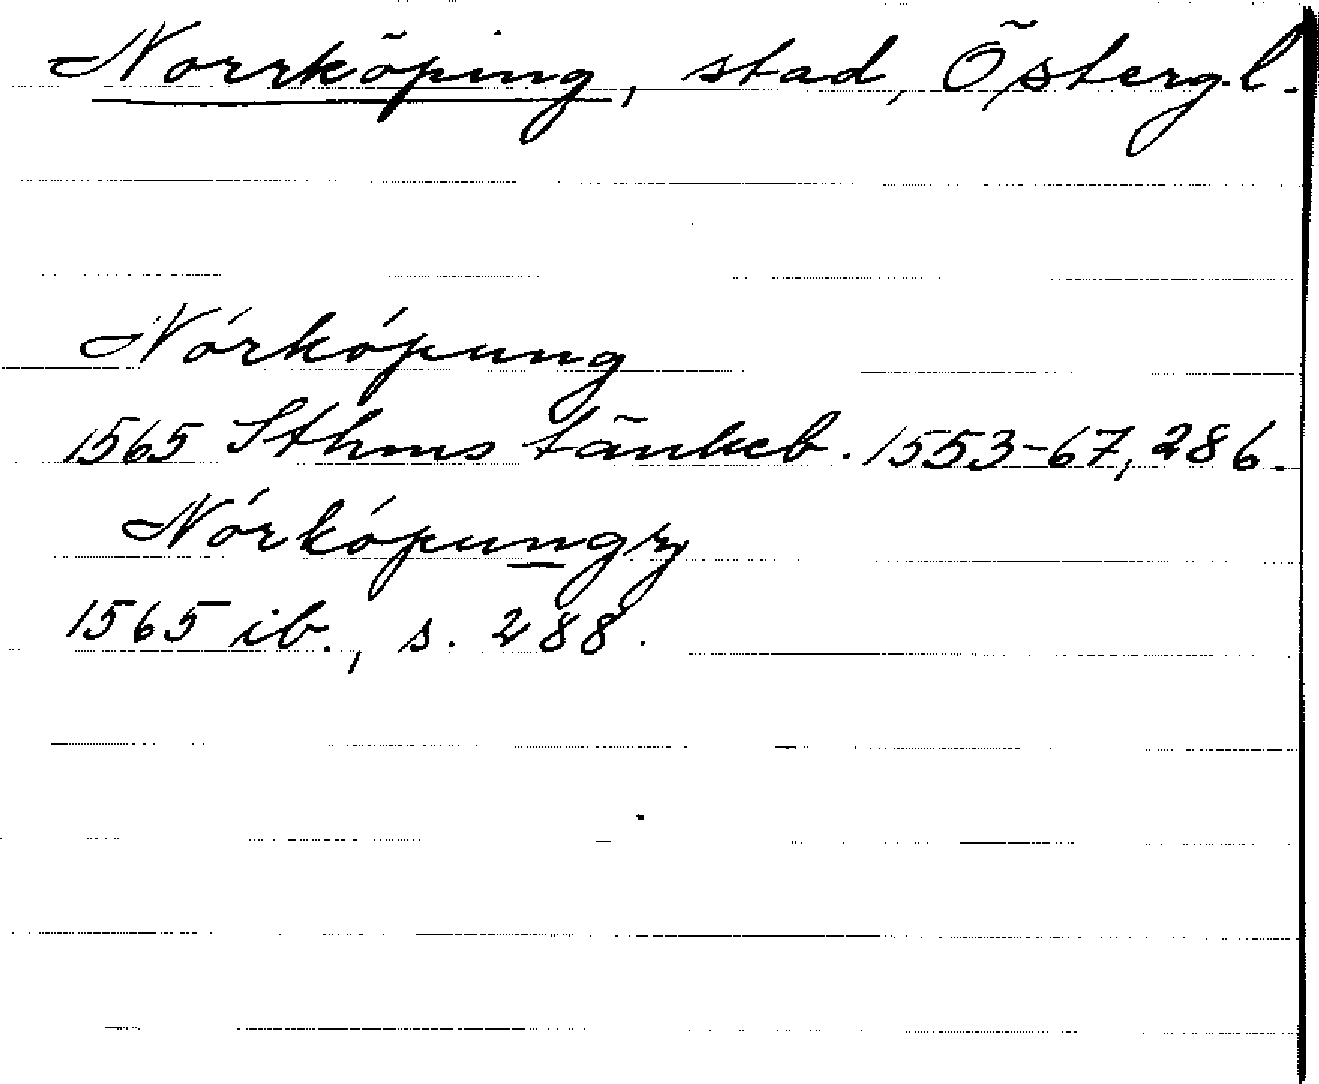 Norrköping, stad, Östergl.
Nórkópung
1565 Sthms tänkeb. 1553-67, 286.
Nórkópungz
1565 ib., s. 288.